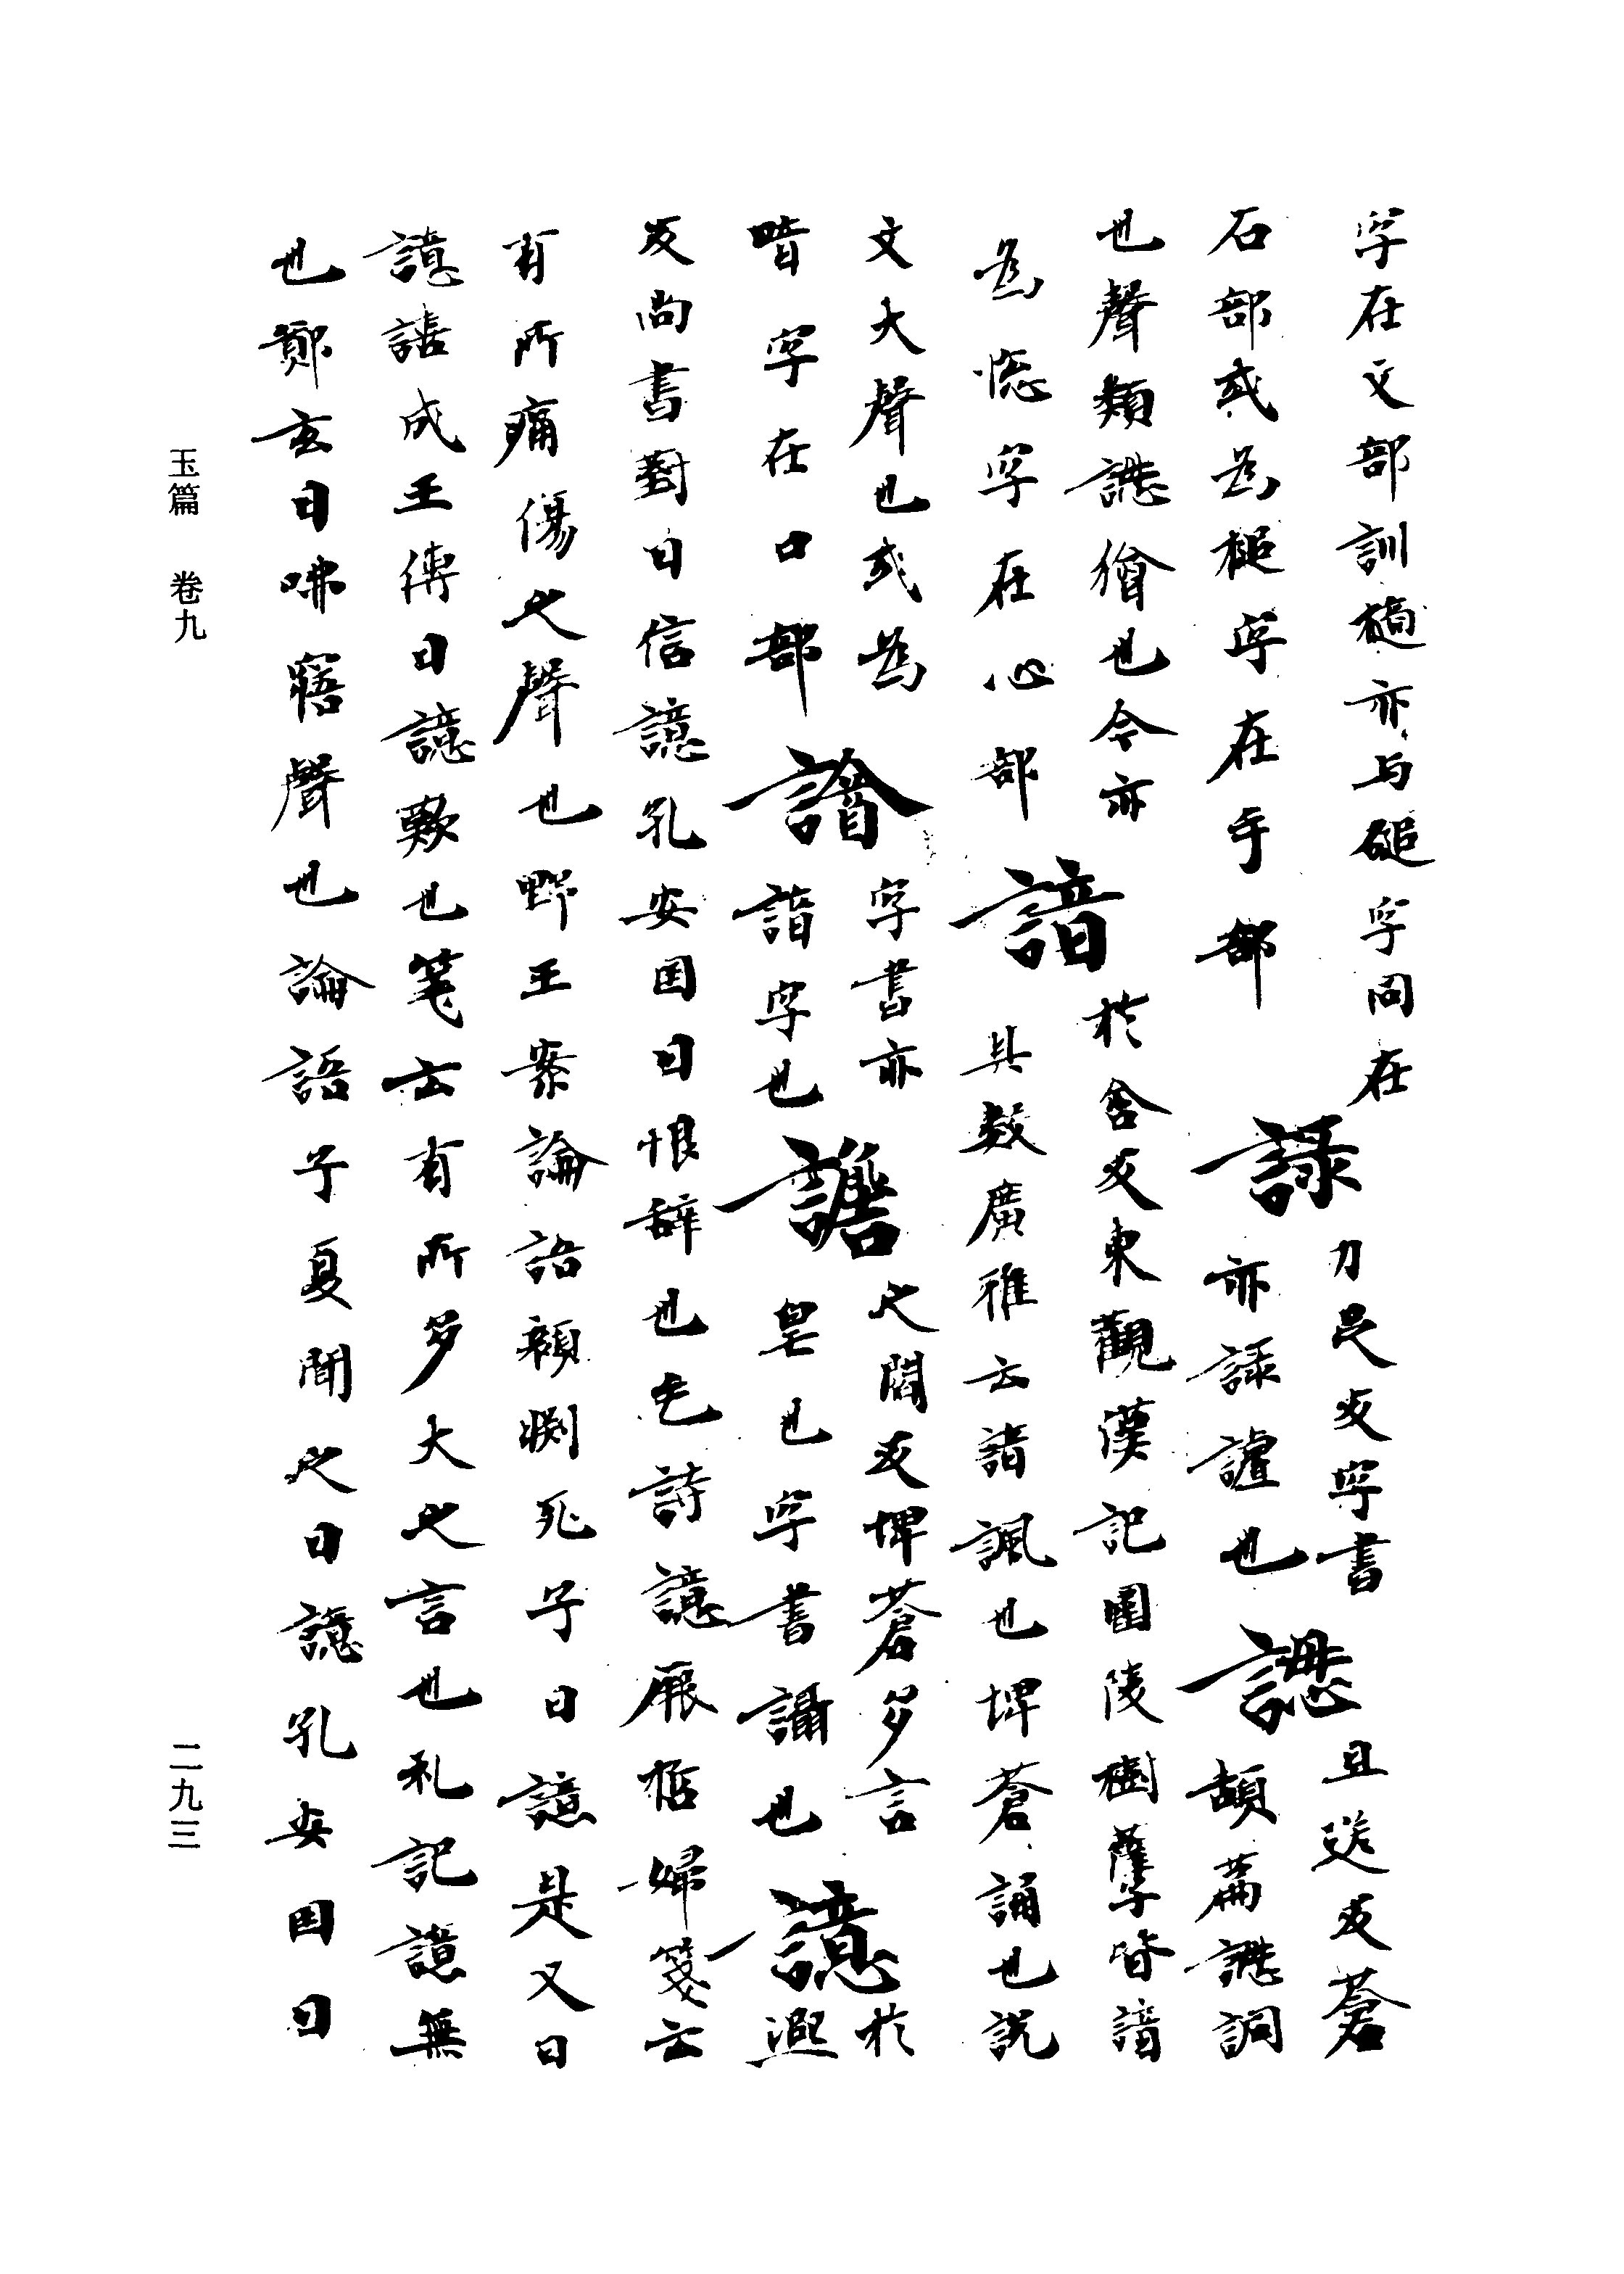 字在文部訓檛亦与磓字同在
石部或為槌字在手部
䛵
力足反字書
亦䛵謯也
謥
且送反蒼
頡篇謥詷
也聲類謥獪也今亦
為憁字在心部
諳
於含反東觀漢記園陵樹蘖皆諳
其數廣雅云諳諷也埤蒼誦也説
文大聲也或為
喑字在口部
字書亦
諳字也
譫
之閻反埤蒼多言
皃也字書讘也
譩
於
熙
反尚書對曰信譩孔安国曰恨辞也毛詩譩厥悊婦箋云
有所痛傷之聲也野王案論語顔渕死子曰譩是又曰
譩譆成王傳曰譩歎也笺云有所多大之言也礼記譩無
也鄭玄曰咈寤聲也論語子夏聞之曰譩孔安国曰
玉篇 卷九
二九三